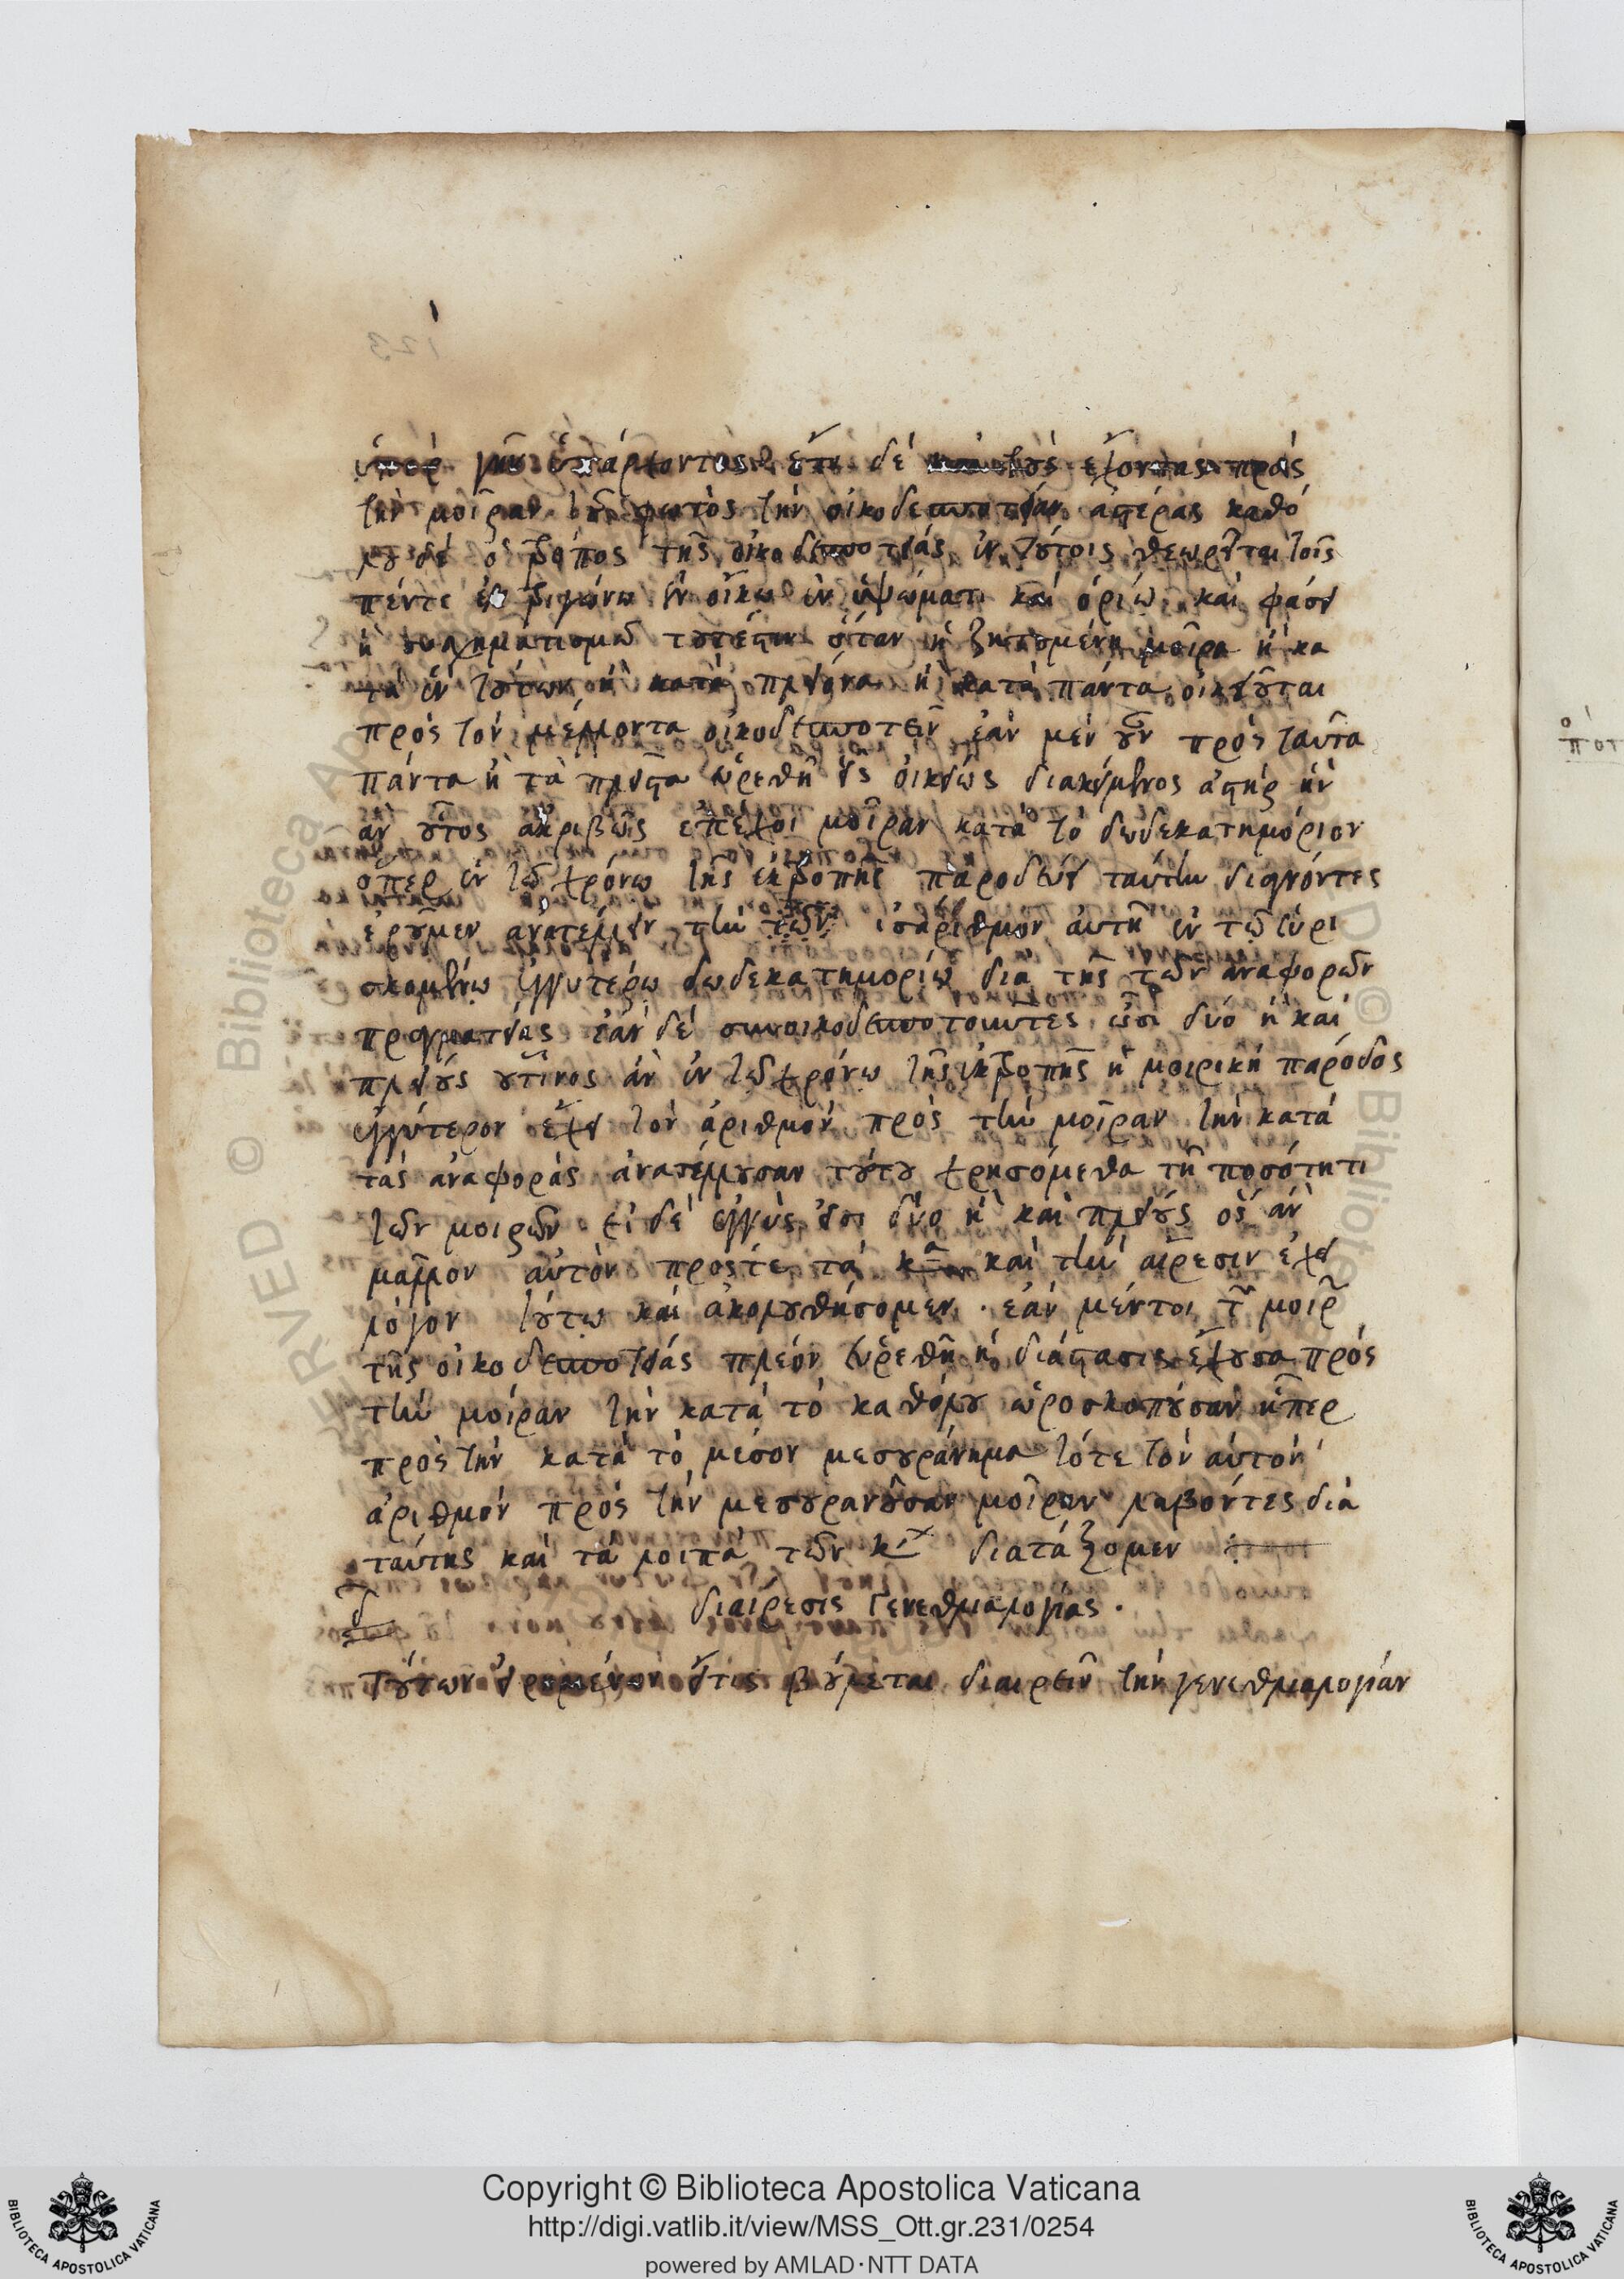 ὑπὲρ γῆν ὑπάρχοντος ἔτι δὲ καὶ τοὺς ἔχοντας πρὸς
τὴν μοῖραν τοῦ φωτὸς τὴν οἰκοδεσποτείαν ἀστέρας καθό
λου δὲ ὁ τρόπος τῆς οἰκοδεσποτείας ἐν τούτοις θεωρεῖται τοῖς
πέντε ἐν τριγώνω ἐν οἴκω ἐν ὑψώματι καὶ ὁρίω καὶ φάσει
ἢ συσχηματισμῶ τουτέστιν ὅταν ἡ ζητουμένη μοῖρα ἢ κα
τὰ ἓν τούτων ἢ κατὰ πλείονα ἢ κατὰ πάντα οἰκειοῦται
πρὸς τὸν μέλλοντα οἰκοδεσποτεῖν ἐὰν μὲν οὖν πρὸς ταῦτα
πάντα ἢ τὰ πλεῖστα εὑρεθῆ εἷς οἰκείως διακείμενος ἀστὴρ ἣν
ἂν οὗτος ἀκριβῶς ἐπέχοι μοῖραν κατὰ τὸ δωδεκατημόριον
ὅπερ ἐν τῶ χρόνω τῆς ἐκτροπῆς παροδεύει ταύτην διαγνόντες
ἐροῦμεν ἀνατέλλειν τὴν τῶν ἰσάριθμον αὐτῆ ἐν τῶ εὑρι
σκομένω ἐγγυτέρω δωδεκατημορίω διὰ τῆς τῶν ἀναφορῶν
πραγματείας ἐὰν δὲ συνοικοδεσποτοῦντες ὦσι δύο ἢ καὶ
πλείους οὗτινος ἂν ἐν τῶ χρόνω τῆς ἐκτροπῆς ἡ μοιρικὴ πάροδος
ἐγγύτερον ἔχει τὸν ἀριθμὸν πρὸς τὴν μοῖραν τὴν κατὰ
τὰς ἀναφορὰς ἀνατέλλουσαν τούτου χρησόμεθα τῆ ποσότητι
τῶν μοιρῶν εἰ δὲ ἐγγὺς εἶσι δύο ἢ καὶ πλείους ὃς ἂν
μᾶλλον αὐτὸν πρός τε τὰ κ καὶ τὴν αἵρεσιν ἔχει
λόγον τούτω καὶ ἀκολουθήσομεν · ἐὰν μέντοι τ μοιρ
τῆς οἰκοδεσποτείας πλέον εὑρεθῆ ἡ διάστασις ἔχουσα πρὸς
τὴν μοῖραν τὴν κατὰ τὸ καθόλου ὡροσκοποῦσαν ἤπερ
πρὸς τὴν κατὰ τὸ μέσον μεσουράνημα τότε τὸν αὐτὸν
ἀριθμὸν πρὸς τὴν μεσουρανοῦσαν μοῖραν λαβόντες διὰ
ταύτης καὶ τὰ λοιπὰ τῶν κ διατάξομεν :
δ διαίρεσις γενεθλιαλογίας ·
Τούτων εἰρημένων εἴ τις βούλεται διαιρεῖν τὴν γενεθλιαλογίαν
Copyright © Biblioteca Apostolica Vaticana
http://digi.vatlib.it/view/MSS_Ott.gr.231/0254
powered by AMLAD·NTT DATA
BIBLIOTECA APOSTOLICA VATICANA
BIBLIOTECA APOSTOLICA VATICANA